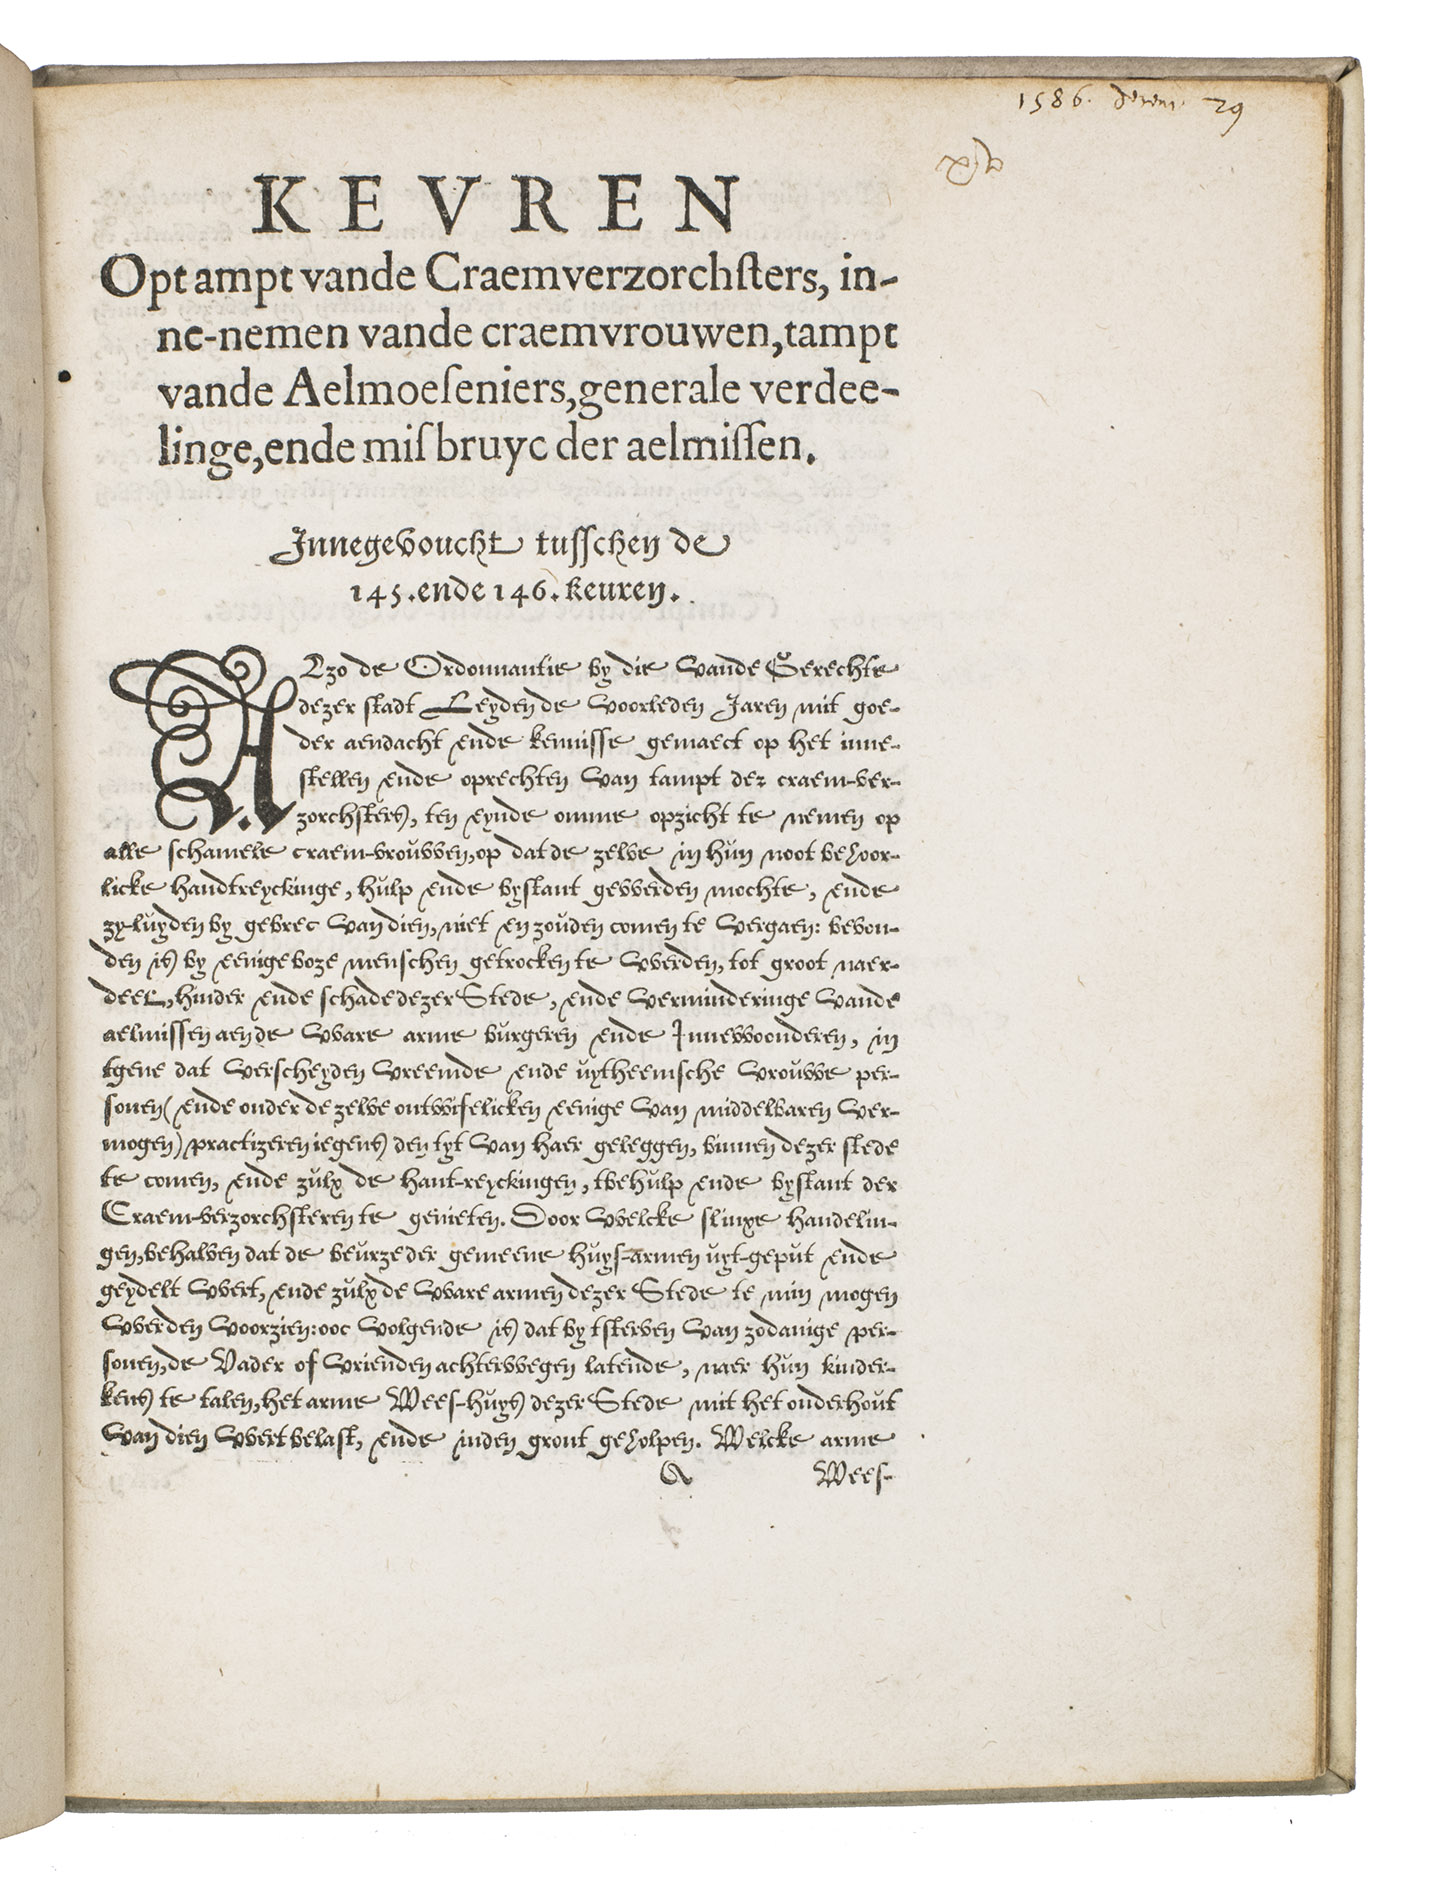 1586. decem. 29
KEVREN
Opt ampt vande Craemverzorchsters, in-
ne-nemen vande craemvrouwen, tampt
vande Aelmoeseniers, generale verdee-
linge, ende misbruyc der aelmissen.
Innegevoucht tusschen de
145. ende 146. keuren.
Alzo de Ordonnantie by die vande Gerechte
dezer stadt Leyden de voorleden Jaren mit goe-
der aendacht ende kennisse gemaect op het inne-
stellen ende oprechten van tampt der craem-ver-
zorchsters, ten eynde omme opzicht te nemen op
alle schamele craem-vrouwen, op dat de zelve in hun noot behoor-
licke handtreyckinge, hulp ende bystant gewerden mochte, ende
zy-luyden by gebrec van dien, niet en zouden comen te vergaen: bevon-
den is by eenige boze menschen getrocken te werden, tot groot naer-
deel, hinder ende schade dezer Stede, ende verminderinge vande
aelmissen aen de ware arme burgeren ende Innewoonderen, in
tgene dat verscheyden vreemde ende uytheemsche vrouwe per-
sonen (ende onder de zelve ontwifelicken eenige van middelbaren ver-
mogen) practizeren iegens den tyt van haer geleggen, binnen dezer stede
te comen, ende zulx de hant-reyckingen, tbehulp ende bystant der
Craem-verzorchsteren te genieten. Door welcke slinxe handelin-
gen, behalven dat de beurze der gemeene huys-armen uyt-geput ende
geydelt wert, ende zulx de ware armen dezer Stede te min mogen
werden voorzien: ooc volgende is dat by tsterven van zodanige per-
sonen, de Vader of vrienden achterwegen latende, naer hun kinder-
kens te talen, het arme Wees-huys dezer Stede mit het onderhout
van dien wert belast, ende inden gront geholpen. Welcke arme
A Wees-